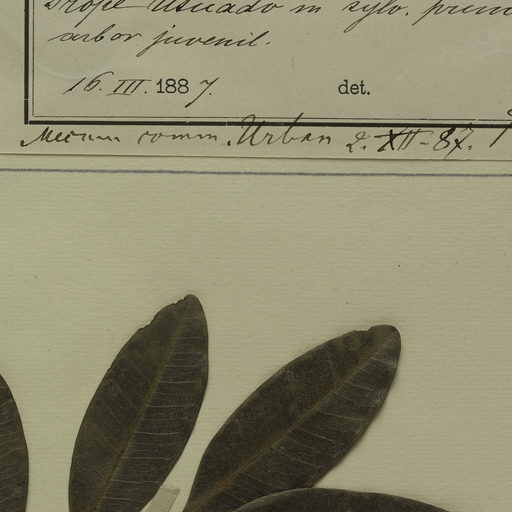 Prope Utuado in sylv. prim
arbor juvenil.
16. III. 1887. det.
Mecum comm. Urban 2. XII - 87.